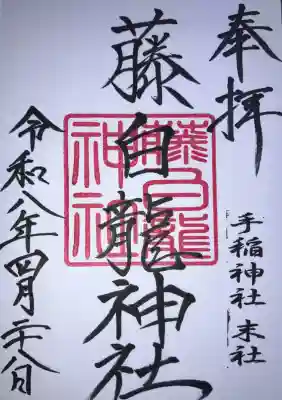 奉拝
手稲神社 末社
藤白龍神社
藤白龍神社
令和八年四月二十八日